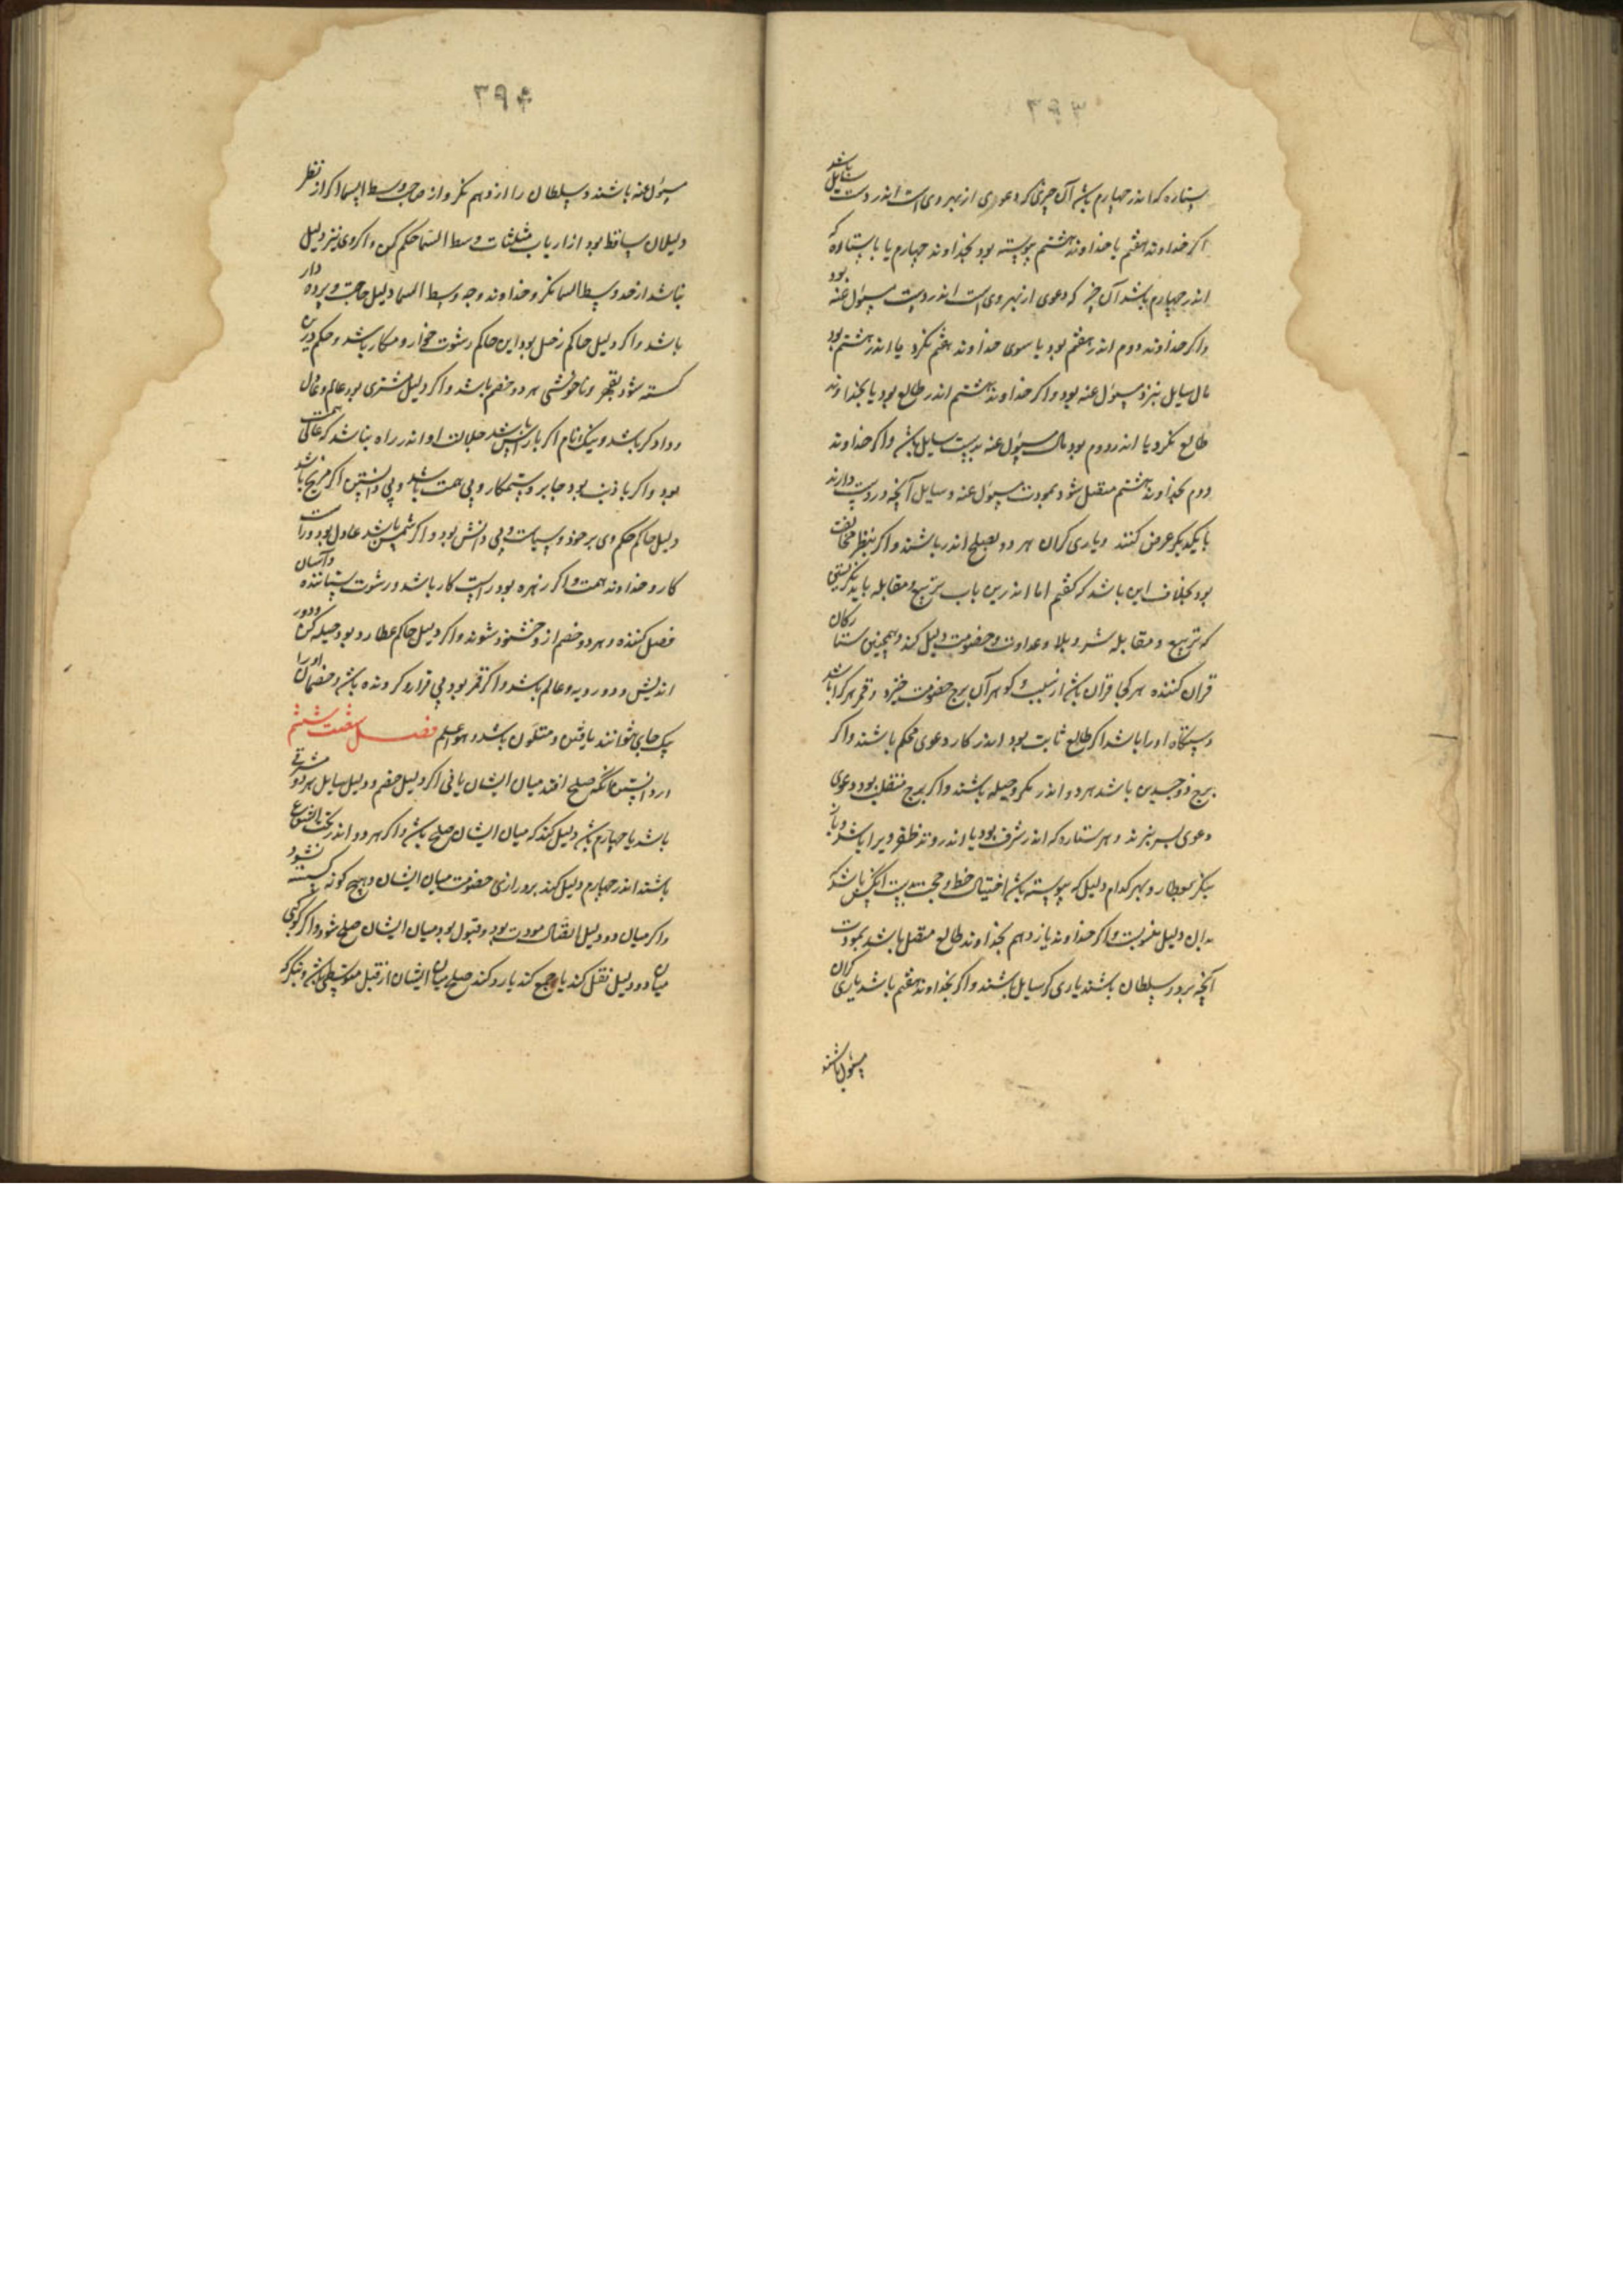 ۳۹۳
ستاره که اندر چهارم باشد آن چیزی که دعوی از بهر وی است اندر دست سایل باشد
اکر خداوند هفتم یا خداوند هشتم پیوسته بود بخداوند چهارم یا با ستاره که
اندر چهارم باشد آن چیز که دعوی از بهر وی است اندر دست مسئول عنه بود
واکر خداوند دوم اندر هفتم بود یا سوی خداوند هفتم نکرد یا اندر هشتم بود
مال سایل نزد مسئول عنه بود واکر خداوند هشتم اندر طالع بود یا بخداوند
طالع نکرد یا اندر دوم بود مال مسئول عنه بدست سایل باشد واکر خداوند
دوم بخداوند هشتم متصل شود بمودت مسئول عنه وسایل آنچه در دست دارند
با یکدیکر عرض کنند ویاری کران هر دو بصلح اندر باشند واکر بنظر مخالفت
بود بخلاف این باشد که کفتم اما اندرین باب تربیع ومقابله باید نکریستن
که تربیع ومقابله شر وبلا وعداوت وخصومت دلیل کند وهمچنین ستارکان
قران کننده هر کجا قران باشد از سبب کوهر آن برج خصومت خیزد وقمر هر کرا باشد
دستکاه او را باشد اکر طالع ثابت بود اندر کار دعوی محکم باشند واکر
برج ذو جسدین باشد هر دو اندر مکر وحیله باشند واکر برج منقلب بود دعوی
دعوی بسر نبرند وهر ستاره که اندر شرف بود یا اندر وتد ظفر ویرا باشد وباز
بنکر بعطارد وبهر کدام دلیل که پیوسته باشد احتیال خط وحجت بدست آنکس باشد که
بدان دلیل منسوبست واکر خداوند یازدهم بخداوند طالع متصل باشد بمودت
آنچه بر در سلطان باشند یاری کر سایل باشند واکر بخداوند هفتم باشد یاری کران
مسئول باشند
۳۹۴
مسئول عنه باشند وسلطان را از دهم نکر واز صاحب وسط السما اکر از نظر
دلیلان ساقط بود از ارباب مثلثات وسط السما حکم کن واکر وی نیز دلیل
نباشد از حد وسط السما نکر وخداوند وجه وسط السما دلیل حاجت وپرده دار
باشد واکر دلیل حاکم زحل بود این حاکم رشوت خوار ومکار باشد وحکم دیرین
کسته شود بقهر وناخوشی هر دو خصم باشد واکر دلیل مشتری بود عالم وعادل
ودادکر باشد ونیک نام اکر با راس باشد جلالت او اندر راه نباشد که عالی همت
بود واکر با ذنب بود جابر وستمکار وبی همت باشد وبی دانش اکر مریخ باشد
دلیل حاکم حکم وی بر خود وسیاست وبی دانش بود واکر شمس باشد عادل بود وراست
کار وخداوند همت واکر زهره بود راست کار باشد ورشوت ستاننده وآسان
فصل کننده وهر دو خصم از وخشنود شوند واکر دلیل حاکم عطارد بود حیله کر ودور
اندیش ودور رویه وعالم باشد واکر قمر بود بی قرار وکرونده باشد وخصمان او را
یک جای نتوانند یافتن ومتلون باشد وهو اعلم فصل شصت ششم
در دانستن آنکه صلح افتد میان ایشان یا نی اکر دلیل خصم ودلیل سایل هر دو مشرقی
باشد یا چهارم باشد دلیل کند که میان ایشان صلح باشد واکر هر دو اندر تحت الشعاع
باشند اندر چهارم دلیل کند بر درازی خصومت میان ایشان وهیچ کونه نشود
واکر میان دو دلیل اتصال مودت بود وقبول بود میان ایشان صلح شود واکر کوکبی
میان دو دلیل نقل کند یا جمع کند یا رد کند صلح میان ایشان از قبل متوسطی باشد وبنکر که